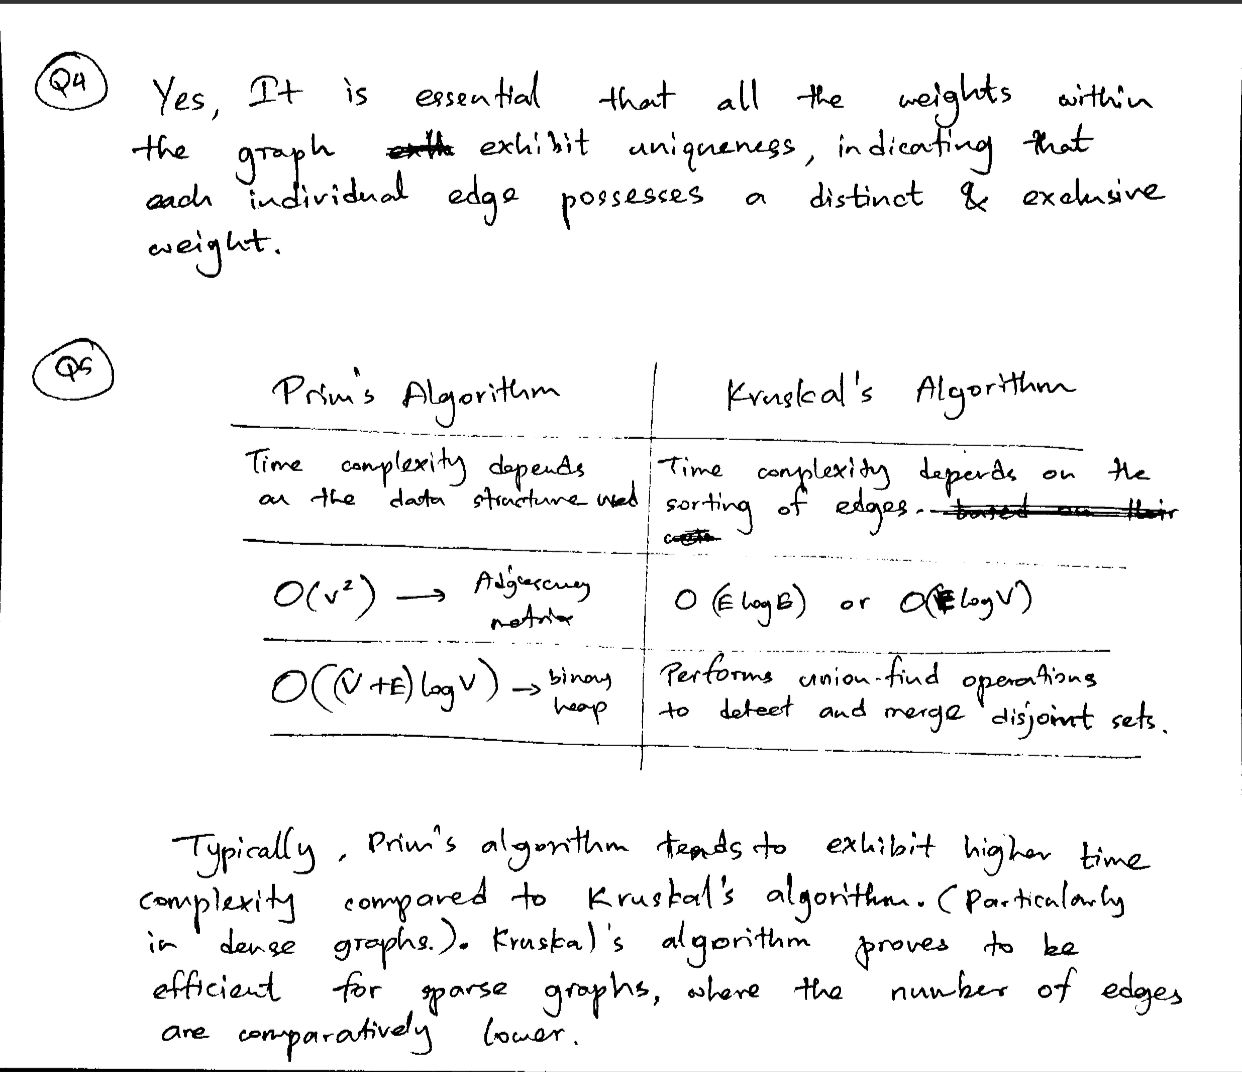 Q4
Yes, It is essential that all the weights within
the graph exhibit uniqueness, indicating that
each individual edge possesses a distinct & exclusive
weight.
Q5
Prim's Algorithm
Kruskal's Algorithm
Time complexity depends
on the data structure used
Time complexity depends on the
sorting of edges.
O(V²) → Adjacency
matrix
O (E log E) or O(E log V)
O((V+E) log V) → binary
heap
Performs union-find operations
to detect and merge disjoint sets.
Typically, Prim's algorithm tends to exhibit higher time
complexity compared to Kruskal's algorithm. (Particularly
in dense graphs.). Kruskal's algorithm proves to be
efficient for sparse graphs, where the number of edges
are comparatively lower.